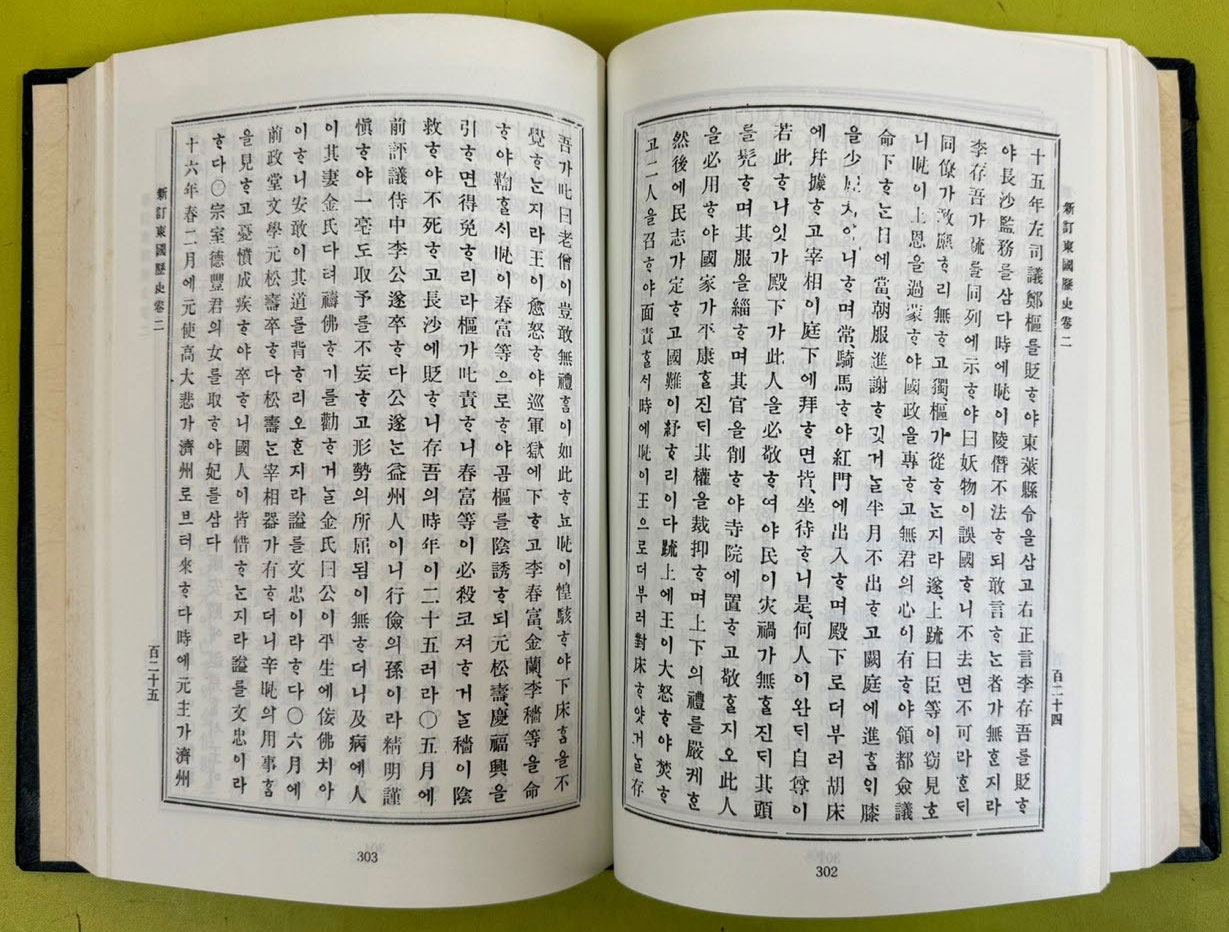 新訂東國歷史卷二
百二十四
十五年左司議鄭樞를貶ᄒᆞ야東萊縣令을삼고右正言李存吾를貶ᄒᆞ
야長沙監務를삼다時에旽이陵僭不法ᄒᆞ되敢言ᄒᆞᄂᆞᆫ者가無ᄒᆞᆫ지라
李存吾가疏를同列에示ᄒᆞ야曰妖物이誤國ᄒᆞ니不去면不可라ᄒᆞᆫᄃᆡ
同僚가敢應ᄒᆞ리無ᄒᆞ고獨、樞가從ᄒᆞᄂᆞᆫ지라遂、上疏曰臣等이窃見ᄒᆞ
니旽이上恩을過蒙ᄒᆞ야國政을專ᄒᆞ고無君의心이有ᄒᆞ야領都僉議
命下ᄒᆞᄂᆞᆫ日에當、朝服進謝ᄒᆞ깃거ᄂᆞᆯ半月不出ᄒᆞ고闕庭에進ᄒᆞᆷᄋᆡ膝
을少屈 아니ᄒᆞ며常、騎馬ᄒᆞ야紅門에出入ᄒᆞ며殿下로더부러胡床
에幷據ᄒᆞ고宰相이庭下에拜ᄒᆞ면皆、坐待ᄒᆞ니是、何人이완ᄃᆡ自尊이
若此ᄒᆞ니잇가殿下가此人을必敬ᄒᆞ여야民이灾禍가無ᄒᆞᆯ진ᄃᆡ其頭
를髡ᄒᆞ며其服을緇ᄒᆞ며其官을削ᄒᆞ야寺院에置ᄒᆞ고敬ᄒᆞᆯ지오此人
을必用ᄒᆞ야國家가平康ᄒᆞᆯ진ᄃᆡ其權을裁抑ᄒᆞ며上下의禮를嚴케ᄒᆞᆫ
然後에民志가定ᄒᆞ고國難이紓ᄒᆞ리이다疏上에王이大怒ᄒᆞ야焚ᄒᆞ
고二人을召ᄒᆞ야面責ᄒᆞᆯᄉᆡ時에旽이王으로더부러對床ᄒᆞ얏거ᄂᆞᆯ存
302
吾가叱曰老僧이豈敢無禮ᄒᆞᆷ이如此ᄒᆞ뇨旽이惶駭ᄒᆞ야下床ᄒᆞᆷ을不
覺ᄒᆞᄂᆞᆫ지라王이愈怒ᄒᆞ야巡軍獄에下ᄒᆞ고李春富、金蘭、李穡等을命
ᄒᆞ야鞠ᄒᆞᆯᄉᆡ旽이春富等으로ᄒᆞ야곰樞를陰誘ᄒᆞ되元松壽、慶福興을
引ᄒᆞ면得免ᄒᆞ리라樞가叱責ᄒᆞ니春富等이必殺코져ᄒᆞ거ᄂᆞᆯ穡이陰
救ᄒᆞ야不死ᄒᆞ고長沙에貶ᄒᆞ니存吾의時年이二十五러라〇五月에
前評議侍中李公遂卒ᄒᆞ다公遂ᄂᆞᆫ益州人이니行儉의孫이라精明謹
愼ᄒᆞ야一毫도取予를不妄ᄒᆞ고形勢의所屈됨이無ᄒᆞ더니及病에人
이其妻金氏다려禱佛ᄒᆞ기를勸ᄒᆞ거ᄂᆞᆯ金氏曰公이平生에侫佛치아
이ᄒᆞ니安敢이其道를背ᄒᆞ리오ᄒᆞᆫ지라謚를文忠이라ᄒᆞ다〇六月에
前政堂文學元松壽卒ᄒᆞ다松壽ᄂᆞᆫ宰相器가有ᄒᆞ더니辛旽의用事ᄒᆞᆷ
을見ᄒᆞ고憂憤成疾ᄒᆞ야卒ᄒᆞ니國人이皆惜ᄒᆞᄂᆞᆫ지라謚를文忠이라
ᄒᆞ다〇宗室德豐君의女를取ᄒᆞ야妃를삼다
十六年春二月에元使高大悲가濟州로브터來ᄒᆞ다時에元主가濟州
新訂東國歷史卷二
百二十五
303